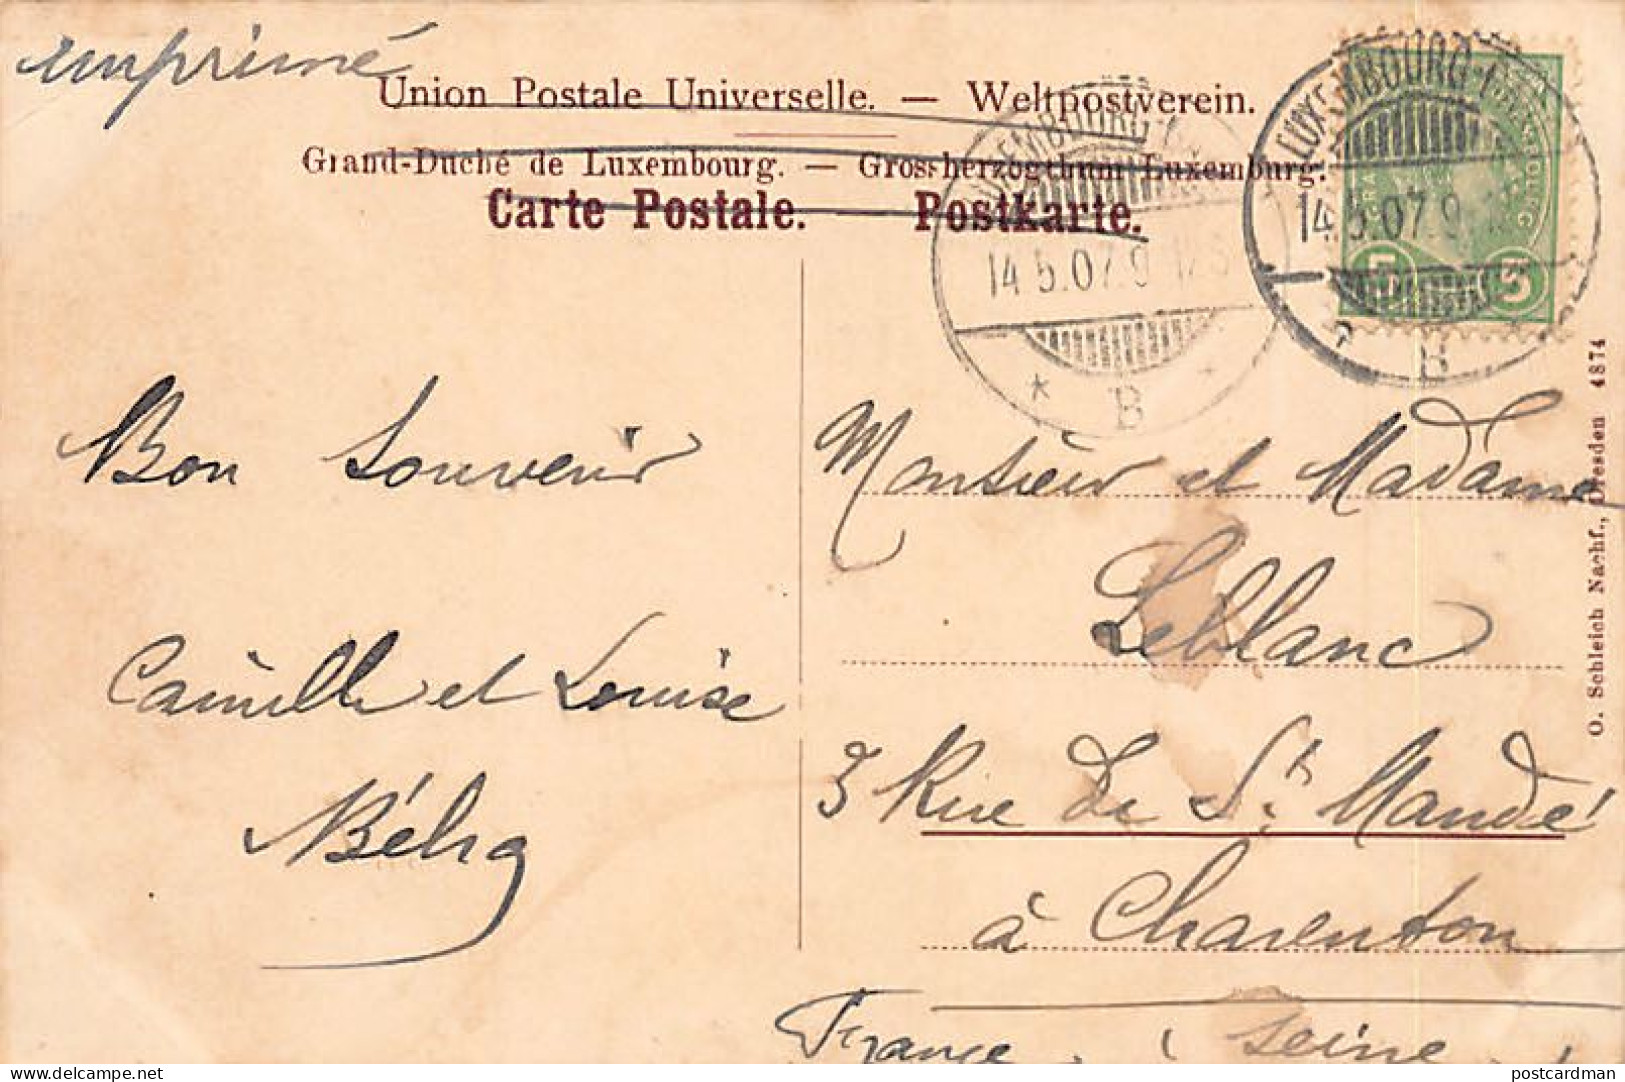 imprimé
Union Postale Universelle. — Weltpostverein.
Grand-Duché de Luxembourg. — Grossherzogthum Luxemburg.
Carte Postale. Postkarte.
LUXEMBOURG-
14.5.07.9
* B
LUXEMBOURG-
14.5.07.9
B
5 5
Bon Souvenir
Camille et Louise
Monsieur et Madame
Leblanc
3 Rue de St. Mandé
à Charenton
France. (Seine
O. Schleich Nachf., Dresden 4874
delcampe.net
postcardman